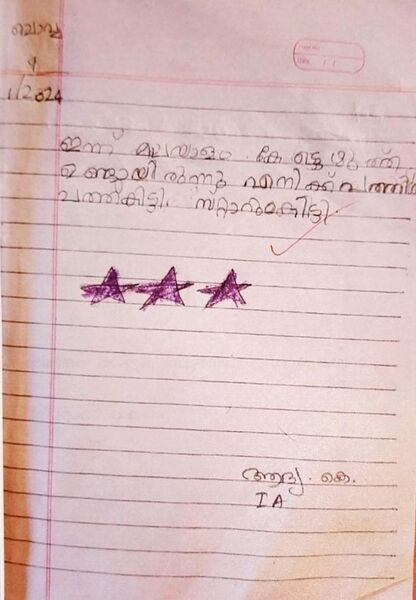 ചൊവ്വ
9
1/2024
ഇന്ന് മലയാളം കേട്ടെഴുത്ത്
ഉണ്ടായിരുന്നു എനിക്ക് പത്തിൽ
പത്ത് കിട്ടി. സ്റ്റാറും കിട്ടി.
ആദ്യ. കെ.
I A